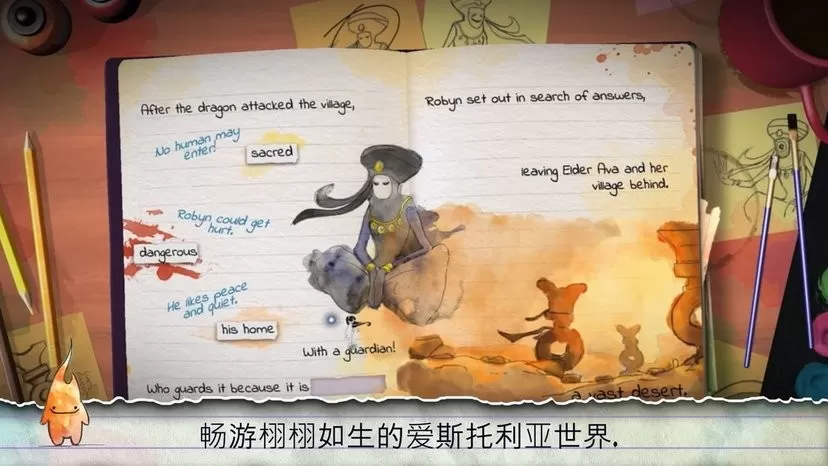 After the dragon attacked the village,
No human may
enter.
sacred
Robyn could get
hurt.
dangerous
He likes peace
and quiet.
his home
With a guardian!
Who guards it because it is
Robyn set out in search of answers,
leaving Elder Ava and her
village behind.
a vast desert.
畅游栩栩如生的爱斯托利亚世界.